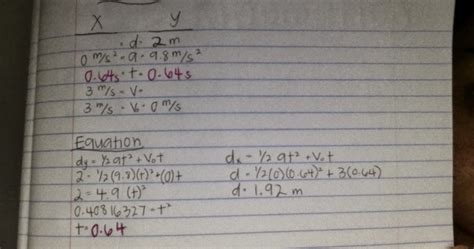 X y
- d - 2 m
0 m/s² - a - 9.8 m/s²
0.64s - t - 0.64s
3 m/s - V -
3 m/s - V₀ - 0 m/s
Equation
dy = ½ at² + V₀t
2 = ½(9.8)(t)² + (0)t
2 = 4.9 (t)²
0.40816327 = t²
t = 0.64
dx = ½ at² + V₀t
d = ½(0)(0.64)² + 3(0.64)
d = 1.92 m